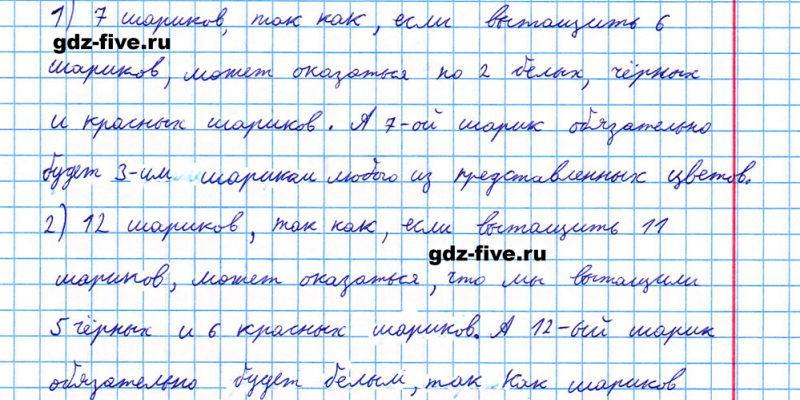 1) 7 шариков, так как, если вытащить 6
gdz-five.ru
шариков, может оказаться по 2 белых, чёрных
и красных шариков. А 7-ой шарик обязательно
будет 3-им шариком любого из представленных цветов.
2) 12 шариков, так как, если вытащить 11
gdz-five.ru
шариков, может оказаться, что мы вытащили
5 чёрных и 6 красных шариков. А 12-ый шарик
обязательно будет белым, так как шариков